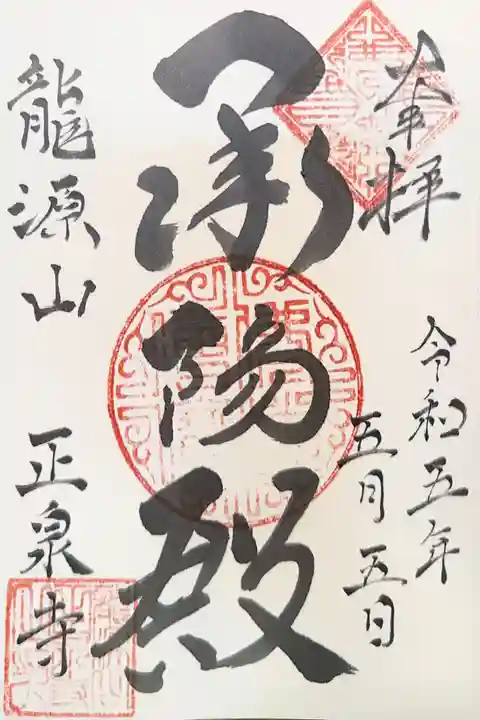 奉拝
令和五年
五月五日
承陽殿
龍源山
正泉寺